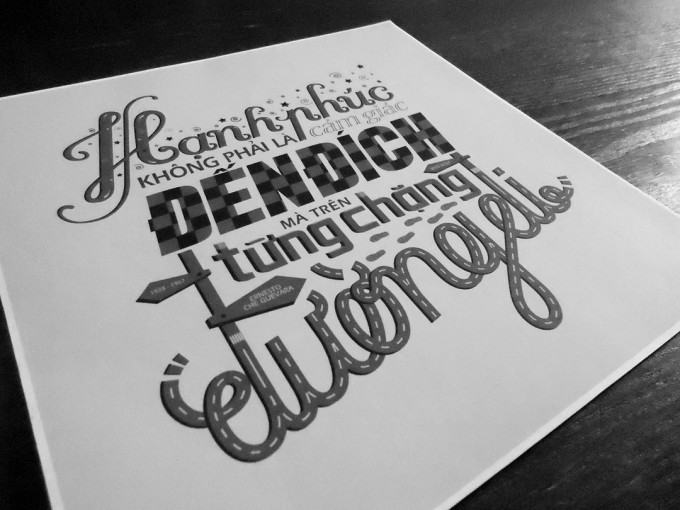 Hạnh phúc
KHÔNG PHẢI LÀ cảm giác
ĐẾN ĐÍCH
MÀ TRÊN
từng chặng
đường đi
1928 - 1967
ERNESTO
CHE GUEVARA